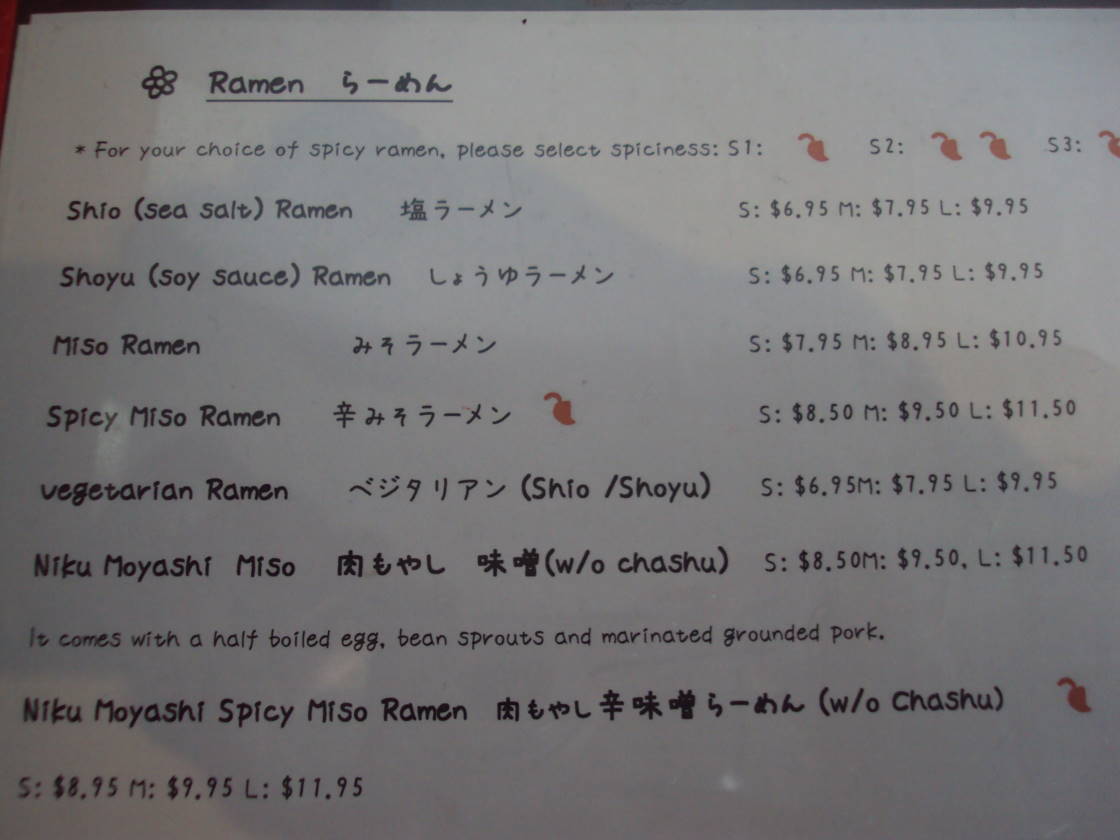 Ramen らーめん
* For your choice of spicy ramen, please select spiciness: S1: S2: S3:
Shio (sea salt) Ramen 塩ラーメン S: $6.95 M: $7.95 L: $9.95
Shoyu (soy sauce) Ramen しょうゆラーメン S: $6.95 M: $7.95 L: $9.95
Miso Ramen みそラーメン S: $7.95 M: $8.95 L: $10.95
Spicy Miso Ramen 辛みそラーメン S: $8.50 M: $9.50 L: $11.50
vegetarian Ramen ベジタリアン (Shio /Shoyu) S: $6.95M: $7.95 L: $9.95
Niku Moyashi Miso 肉もやし 味噌(w/o chashu) S: $8.50M: $9.50, L: $11.50
It comes with a half boiled egg, bean sprouts and marinated grounded pork.
Niku Moyashi Spicy Miso Ramen 肉もやし辛味噌らーめん (w/o Chashu)
S: $8.95 M: $9.95 L: $11.95